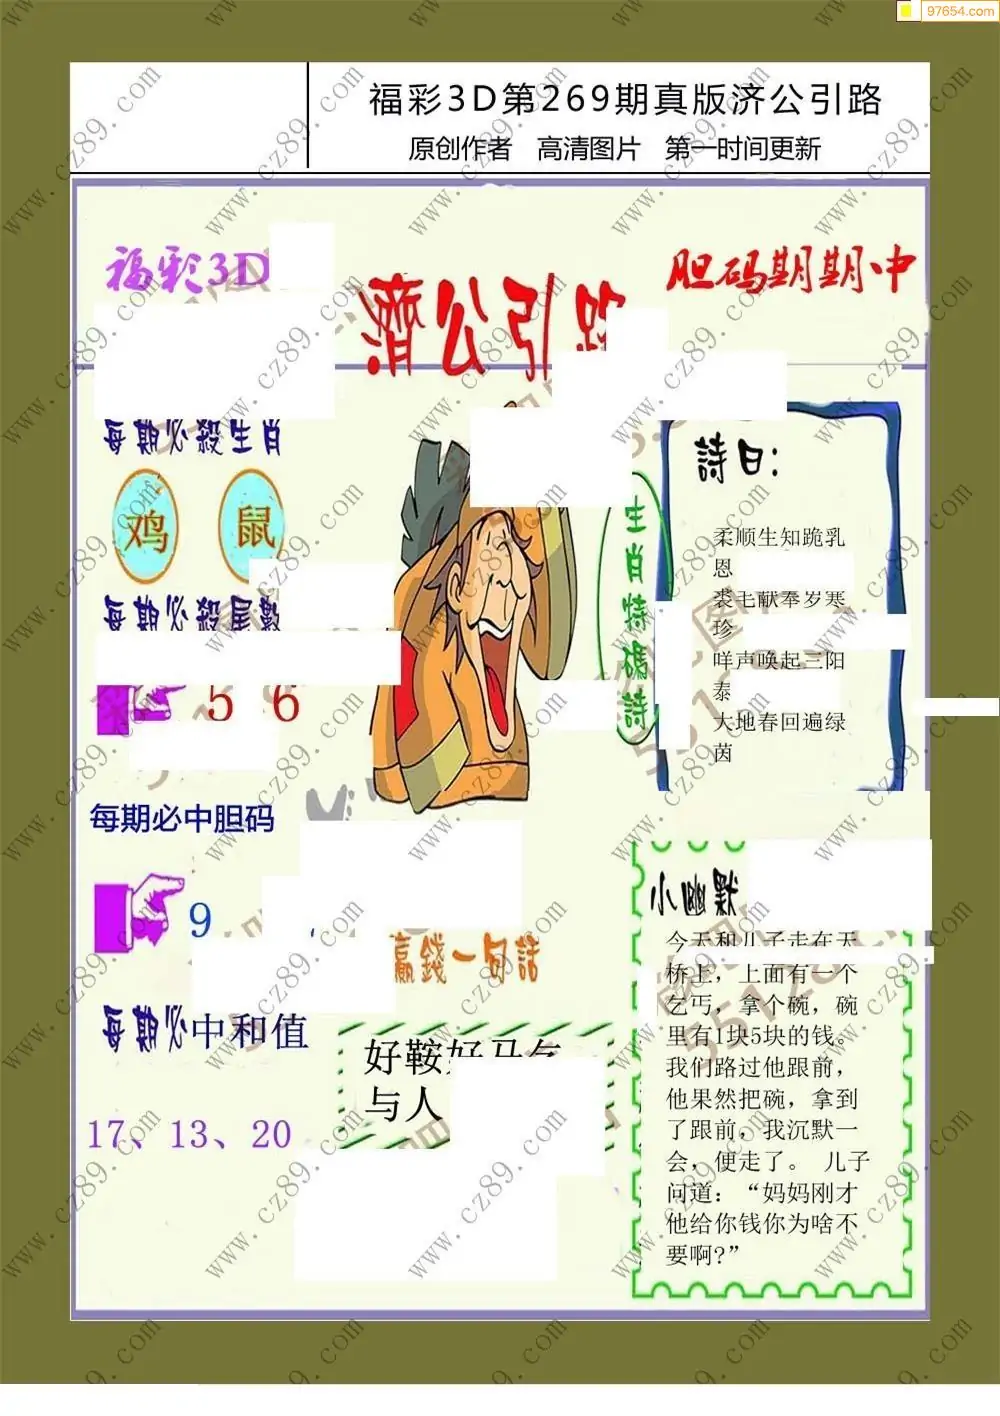 97654.com
福彩3D第269期真版济公引路
原创作者 高清图片 第一时间更新
福彩3D
胆码期期中
濟公引路
每期必殺生肖
鸡 鼠
每期必殺尾數
5 6
每期必中胆码
9
每期必中和值
17、13、20
生肖特碼詩
詩曰:
柔顺生知跪乳
恩
裘毛献奉岁寒
珍
咩声唤起三阳
泰
大地春回遍绿
茵
赢錢一句話
好鞍好马
与人
小幽默
今天和儿子走在天
桥上，上面有一个
乞丐，拿个碗，碗
里有1块5块的钱。
我们路过他跟前，
他果然把碗，拿到
了跟前，我沉默一
会，便走了。 儿子
问道：“妈妈刚才
他给你钱你为啥不
要啊?”
www.cz89.com